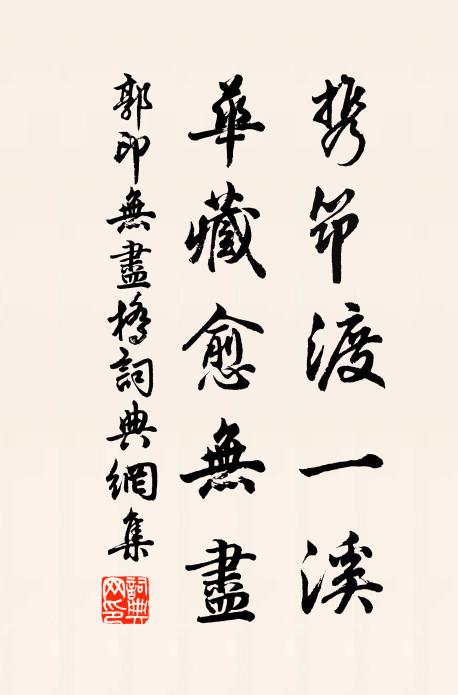 携筇渡一溪
華藏愈無盡
郭印無盡橋詞典網集
詞典網印